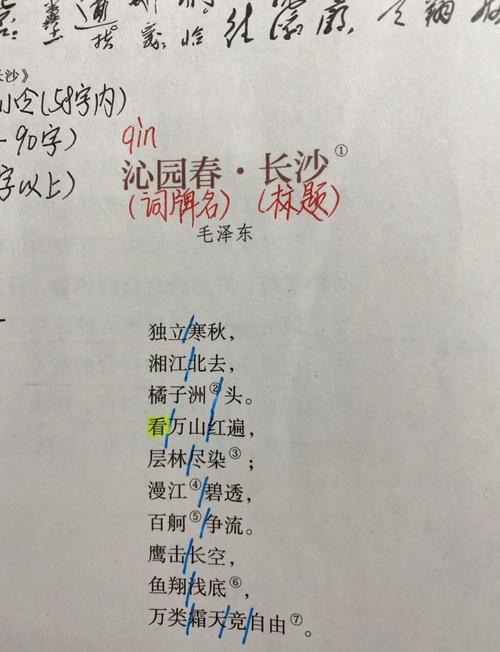 长沙》
小令(58字内)
-90字)
字以上)
qin
沁园春·长沙①
(词牌名) (标题)
毛泽东
独立寒秋,
湘江北去,
橘子洲②头。
看万山红遍,
层林尽染③;
漫江④碧透,
百舸⑤争流。
鹰击长空,
鱼翔浅底⑥,
万类霜天竞自由⑦。